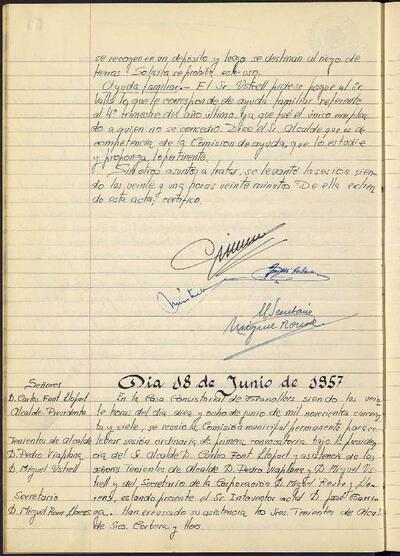 se recogen en un depósito y luego se destinan al riego de
tierras. Solicita se prohiba este uso.
Ayuda familiar.- El Sr. Ustrell pide se pague al Sr.
Valls lo que le corresponde de ayuda familiar referente
al 4º trimestre del año último, ya que fué el único emplea
do a quien no se concedió. Dice el Sr. Alcalde que es de
competencia de la Comision de ayuda, que lo estudie
y proponga lo pertinente.
Sin otros asuntos a tratar, se levantó la sesion sien
do las veinte y una horas veinte minutos. De ella extien
do esta acta; certifico.
Señores
D. Carlos Font Llopart
Alcalde-Presidente
Tenientes de Alcalde
D. Pedro Viaplana
D. Miguel Ustrell
Secretario
D. Miguel Roura
Dia 18 de Junio de 1957
En la Casa Consistorial de Granollers siendo las vein
te horas del dia diez y ocho de junio de mil novecientos cincuen
ta y siete, se reunió la Comisión municipal permanente para ce
lebrar sesión ordinaria de primera convocatoria bajo la presiden
cia del Sr. Alcalde D. Carlos Font Llopart y asistencia de los
señores Tenientes de Alcalde D. Pedro Viaplana y D. Miguel Us
trell y del Secretario de la Corporación D. Miguel Roura y
estando presente el Sr. Interventor actal D. José Garri
ga. Han excusado su asistencia los Sres. Tenientes de Alcal
de Sres. Corbera y